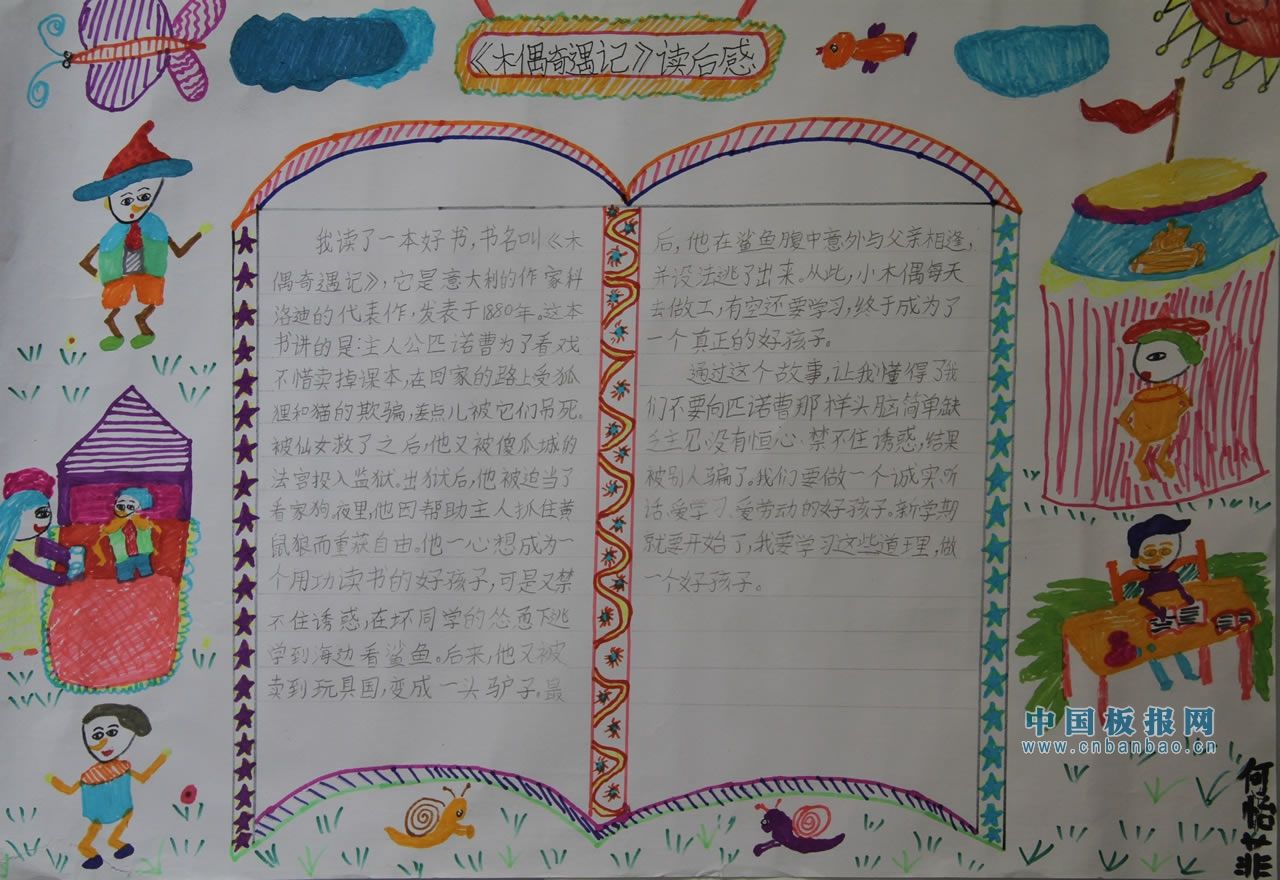 《木偶奇遇记》读后感
我读了一本好书,书名叫《木
偶奇遇记》,它是意大利的作家科
洛迪的代表作,发表于1880年。这本
书讲的是:主人公匹诺曹为了看戏
不惜卖掉课本,在回家的路上受狐
狸和猫的欺骗,差点儿被它们吊死。
被仙女救了之后,他又被傻瓜城的
法官投入监狱。出狱后,他被迫当了
看家狗。夜里,他因帮助主人抓住黄
鼠狼而重获自由。他一心想成为一
个用功读书的好孩子,可是又禁
不住诱惑,在坏同学的怂恿下逃
学到海边看鲨鱼。后来,他又被
卖到玩具国,变成一头驴子。最
后,他在鲨鱼腹中意外与父亲相逢,
并设法逃了出来。从此,小木偶每天
去做工,有空还要学习,终于成为了
一个真正的好孩子。
通过这个故事,让我懂得了我
们不要向匹诺曹那样头脑简单缺
乏主见、没有恒心、禁不住诱惑,结果
被别人骗了。我们要做一个诚实、听
话、爱学习、爱劳动的好孩子。新学期
就要开始了,我要学习这些道理,做
一个好孩子。
中国板报网
www.cnbanbao.cn
何
悟
菲